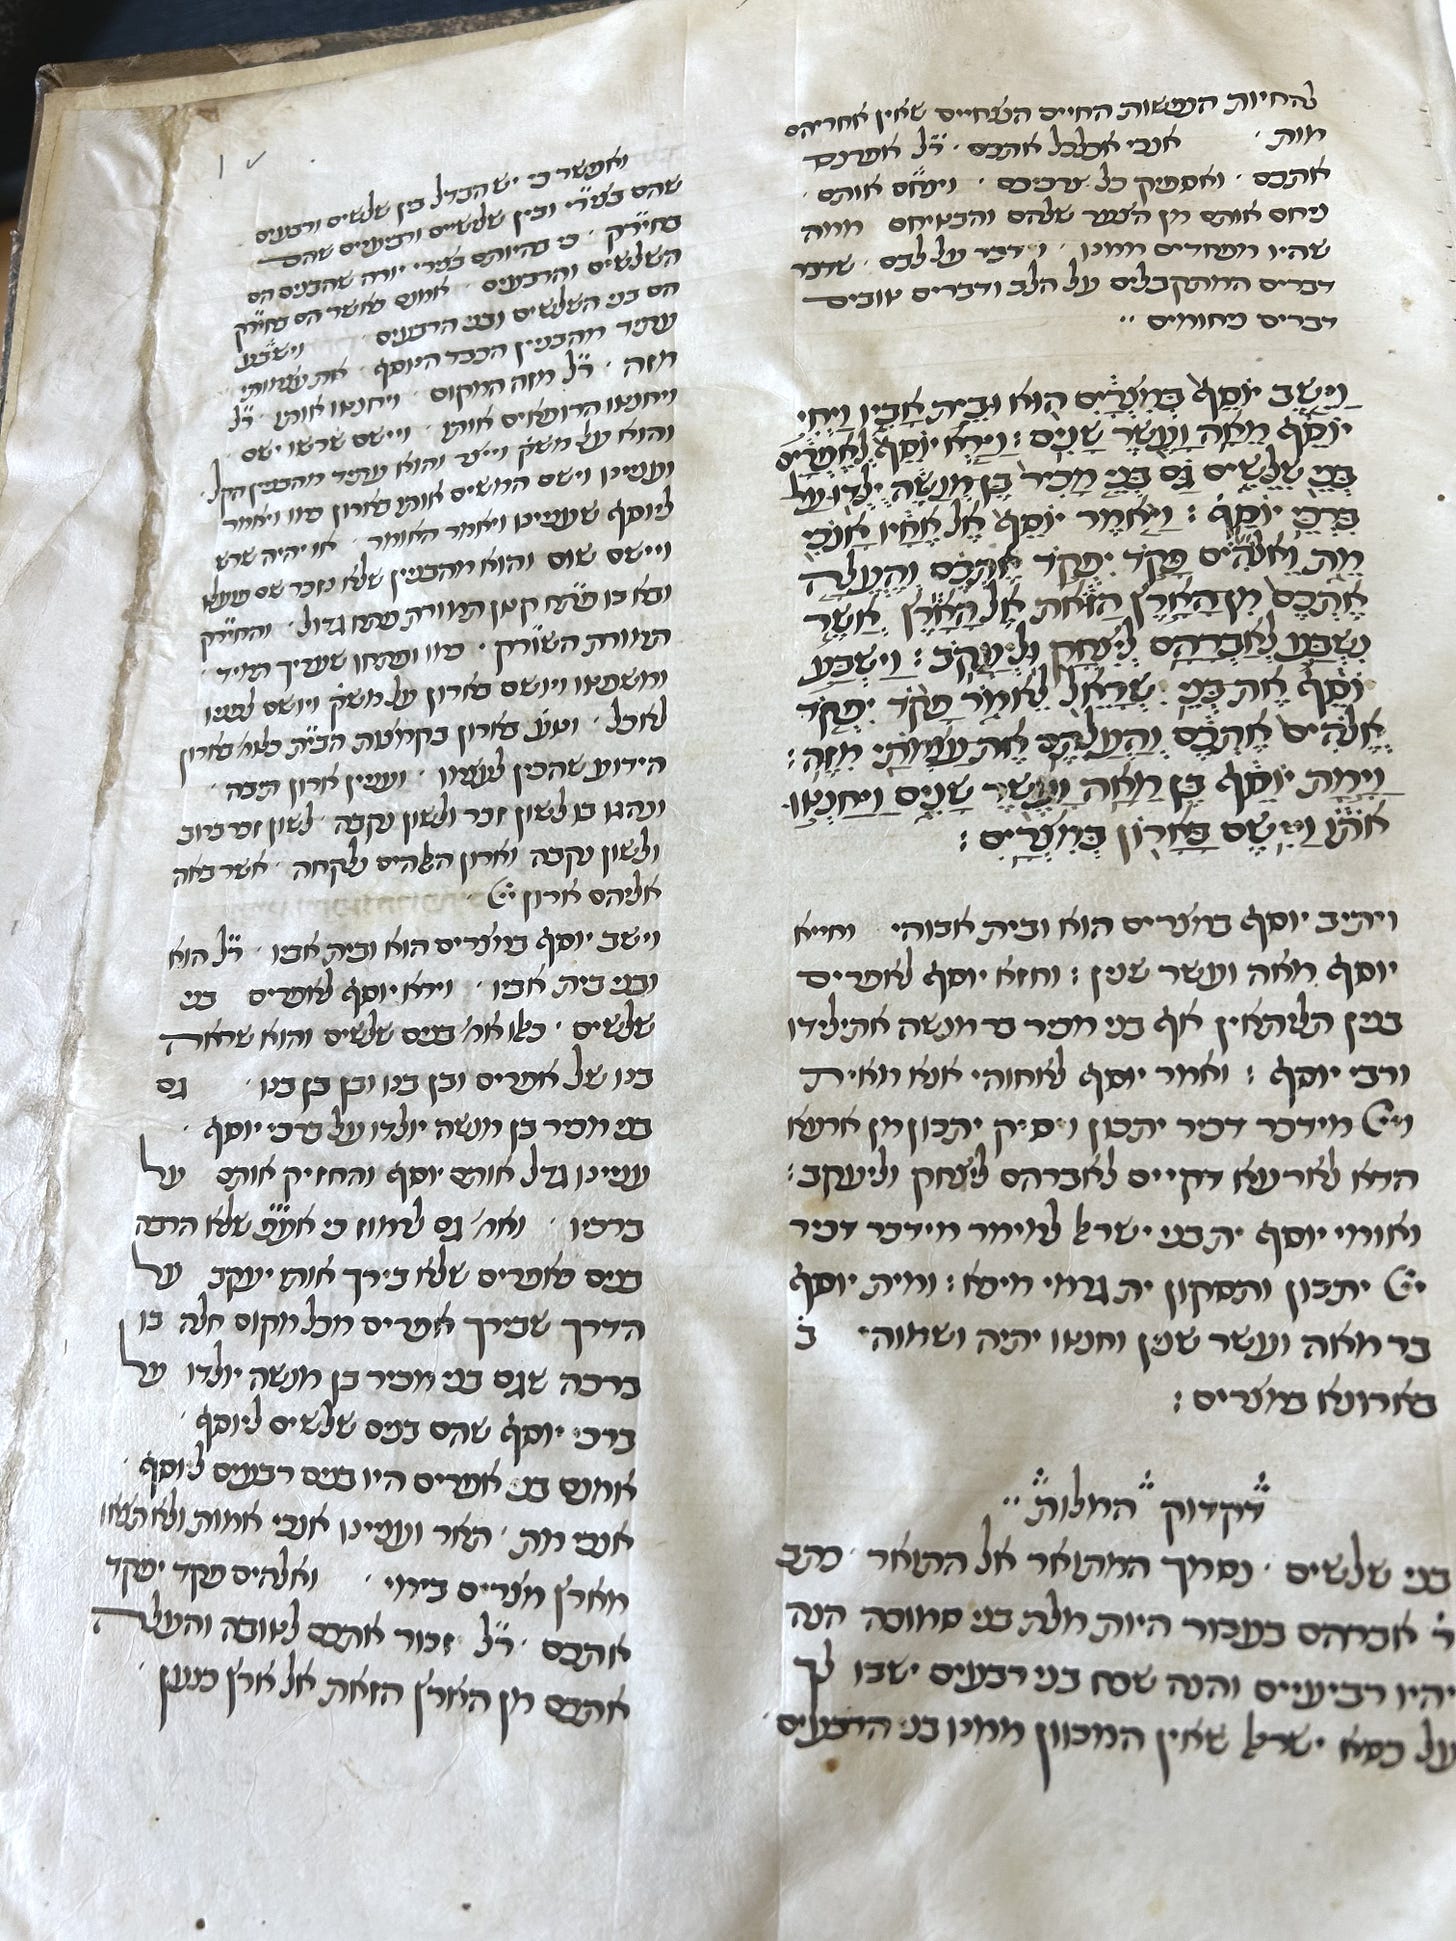 להחיות הנפשות החיים הנצחיים שאין אחריהם
מות · אנכי אכלכל אתכם · ר״ל אפרנס
אתכם · ואספיק כל צרכיכם · וינחם אותם ·
ניחם אותם מן הצער שלהם והבטיחם ממה
שהיו מפחדים ממנו · וידבר על לבם · שדבר
דברים המתקבלים על הלב ודברים טובים
דברים ניחומים ··
וַיֵּשֶׁב יוֹסֵף בְּמִצְרַיִם הוּא וּבֵית אָבִיו וַיְחִי
יוֹסֵף מֵאָה וָעֶשֶׂר שָׁנִים : וַיַּרְא יוֹסֵף לְאֶפְרַיִם
בְּנֵי שִׁלֵּשִׁים גַּם בְּנֵי מָכִיר בֶּן מְנַשֶּׁה יֻלְּדוּ עַל
בִּרְכֵּי יוֹסֵף : וַיֹּאמֶר יוֹסֵף אֶל אֶחָיו אָנֹכִי
מֵת וֵאלֹהִים פָּקֹד יִפְקֹד אֶתְכֶם וְהֶעֱלָה
אֶתְכֶם מִן הָאָרֶץ הַזֹּאת אֶל הָאָרֶץ אֲשֶׁר
נִשְׁבַּע לְאַבְרָהָם לְיִצְחָק וּלְיַעֲקֹב : וַיַּשְׁבַּע
יוֹסֵף אֶת בְּנֵי יִשְׂרָאֵל לֵאמֹר פָּקֹד יִפְקֹד
אֱלֹהִים אֶתְכֶם וְהַעֲלִתֶם אֶת עַצְמֹתַי מִזֶּה :
וַיָּמָת יוֹסֵף בֶּן מֵאָה וָעֶשֶׂר שָׁנִים וַיַּחַנְטוּ
אֹתוֹ וַיִּישֶׂם בָּאָרוֹן בְּמִצְרָיִם :
ויתיב יוסף במצרים הוא ובית אבוהי וחייא
יוסף מאה ועשר שנין : וחזא יוסף לאפרים
בנין תליתאין אף בני מכיר בר מנשה אתילידו
ורבי יוסף : ואמר יוסף לאחוהי אנא מאית
וי״י מידכר דכיר יתכון ויסיק יתכון מן ארעא
הדא לארעא דקיים לאברהם ליצחק וליעקב :
ואומי יוסף ית בני ישראל למימר מידכר דכיר
י״י יתכון ותסקון ית גרמי מיכא : ומית יוסף
בר מאה ועשר שנין וחנטו יתיה ושמוהי ב
בארונא במצרים :
דקדוק המלות ··
בני שלשים · נסמך המתואר אל התואר · כתב
ר׳ אברהם בעבור היות מלת בני סמוכה הנה
יהיו רביעיים והנה שכח בני רבעים ישבו לך
על כסא ישראל שאין המכוון ממנו בני הרבעים
ואפשר כי יש הבדל בין שלשים ורבעים
שהם בצר״י ובין שלשיים ורביעיים שהם
בחיר״ק · כי בהיותם בצרי יורה שהבנים הם
השלשים והרבעים · אמנם כאשר הם בחיר״ק
הם בני השלשים ובני הרבעים · וישבע
עתיד מהבנין הכבד היוסף · את עצמותי
מזה · ר״ל מזה המקום · ויחנטו אותו · ר״ל
ויחנטו הרופאים אותו · ויישם שרשו ישם
והוא על משקל וייטב והוא עתיד מהבנין הקל ·
ועניינו וישם המשים אותו בארון כמו ויאמר
ליוסף שעניינו ויאמר האומר · או יהיה שרש
ויישם שום והוא מהבנין שלא נזכר שם פועלו
ובא בו פתח קטן תמורת פתח גדול · והחירק
תמורת השורק · כמו ופתחו שעריך תמיד ·
ומשפטו ויושם בארון על משקל ויושם לפניו
לאכול · וטעם בארון בקמצות הבי״ת כלו׳ בארון
הידוע שהכין לעצמו · ועניין ארון תיבה ·
ונהגו בו לשון זכר ולשון נקבה · לשון זכר ברוב
ולשון נקבה וארון האלהים נלקחה · אשר באה
אליהם ארון י״י ·
וישב יוסף במצרים הוא ובית אביו · ר״ל הוא
ובני בית אביו · וירא יוסף לאפרים בני
שלשים · כלו׳ אח׳ בנים שלשים והוא שראה
בנו של אפרים ובן בנו ובן בן בנו · גם
בני מכיר בן מנשה יולדו על ברכי יוסף ·
עניינו גדל אותם יוסף והחזיק אותם על
ברכיו · ואח׳ גם לרמוז כי אע״פ שלא הרבה
בנים כאפרים שלא בירך אותו יעקב על
הדרך שבירך אפרים מכל מקום חלה בו
ברכה שגם בני מכיר בן מנשה יולדו על
ברכי יוסף שהם בנים שלשים ליוסף ·
אמנם בני אפרים היו בנים רבעים ליוסף ·
אנכי מת · תאר ועניינו אנכי אמות ולא תצאו
מארץ מצרים בימי · ואלהים פקד יפקד
אתכם · ר״ל זכור אתכם לטובה והעלה
אתכם מן הארץ הזאת אל ארץ כנען ·